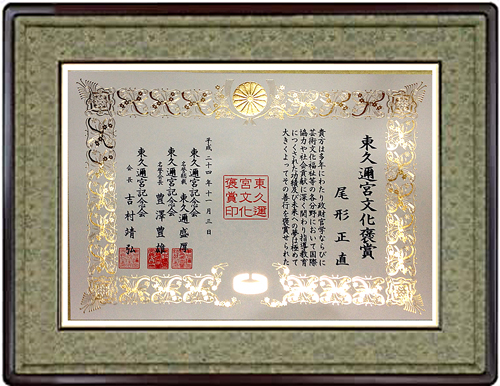 東久邇宮文化褒賞
尾形正直
貴方は多年にわたり政財官学ならびに
芸術文化福祉等の各分野において国際
協力や社会貢献に深く関わり指導教育
につくされた功績及び未来への夢は極めて
大きくよってその善行を褒賞せられた
東久邇
宮文化
褒賞印
平成二十四年十一月三日
東久邇宮記念会
名誉総裁 東久邇盛厚
東久邇宮記念会
名誉会長 豊澤豊雄
東久邇宮記念会
会長 吉村靖弘